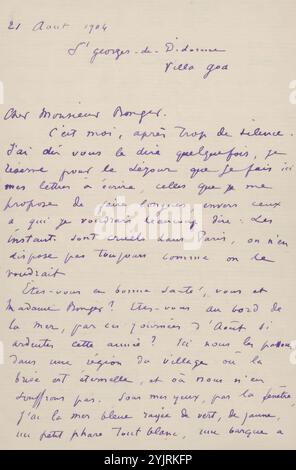 21 Aout 1904
St georges-de-Didonne
Villa Goa
Cher Monsieur Bonger.
C'est moi, après trop de silence.
J'ai dû vous le dire quelquefois, je
réserve pour le séjour que je fais ici
mes lettres à écrire, celles que je me
propose de faire longues envers ceux
à qui je voudrais beaucoup dire: Les
instants sont cruels dans Paris, on n'en
dispose pas toujours comme on le
voudrait
Êtes-vous en bonne santé, vous et
Madame Bonger? Êtes-vous au bord de
la mer, par ces journées d'Août si
ardentes cette année? Ici nous les passons
dans une région du village où la
brise est éternelle, et où nous n'en
souffrons pas. Sous mes yeux, par la fenêtre,
j'ai la mer bleue rayée de vert, de jaune,
un petit phare tout blanc, une barque à
alamy
Image ID: 2YJRKFP
www.alamy.com